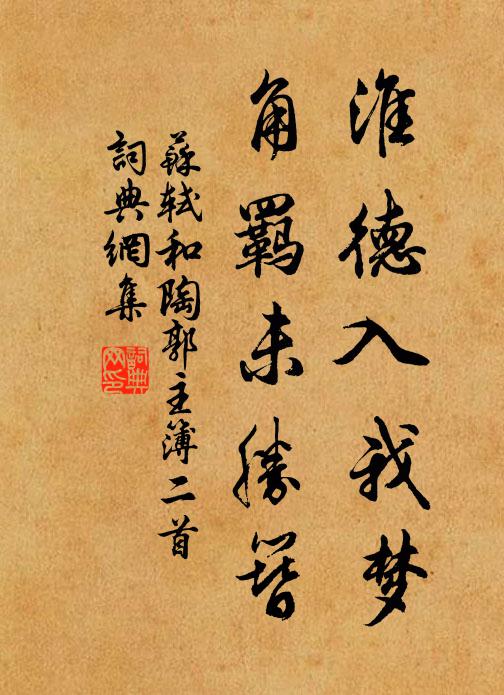 淮德入我梦
角羈未勝簪
蘇軾和陶郭主簿二首
詞典網集
詞典网印